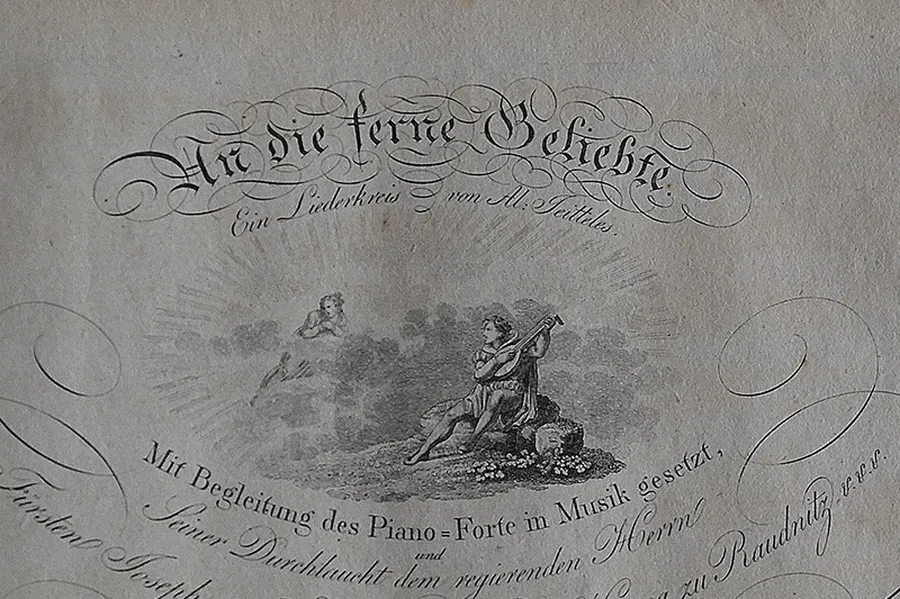 An die ferne Geliebte.
Ein Liederkreis von Al: Jeitteles.
Mit Begleitung des Piano=Forte in Musik gesetzt,
und
Seiner Durchlaucht dem regierenden Herrn
Fürsten Joseph zu Raudnitz v.v.v.